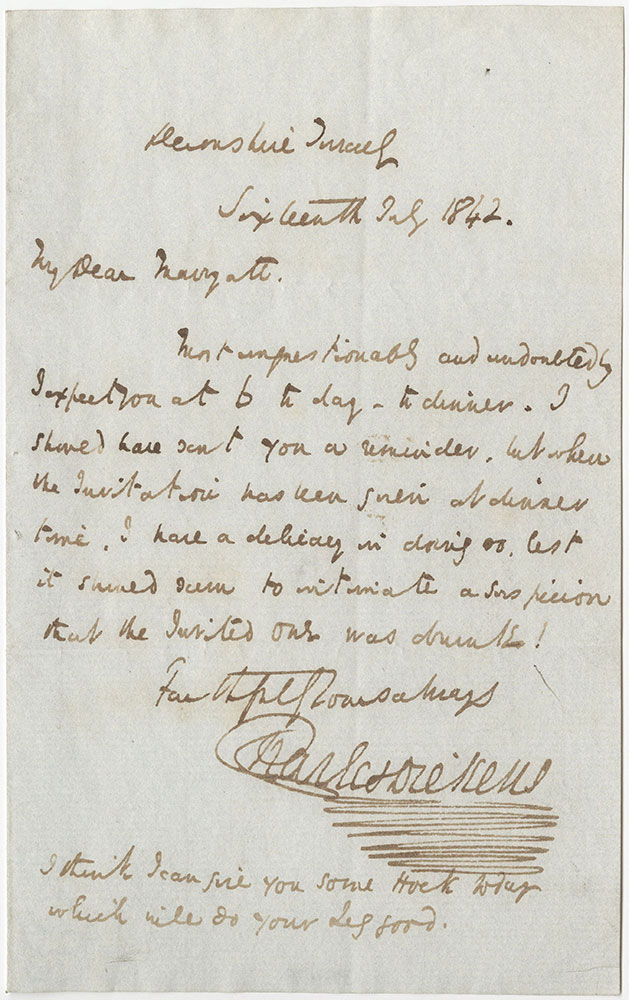 Devonshire Terrace
Sixteenth July 1842.
My Dear Marryatt.
Most unquestionably and undoubtedly
I expect you at 6 to day - to dinner. I
should have sent you a reminder, but when
the Invitation has been given at dinner
time, I have a delicacy in doing so, lest
it should seem to intimate a suspicion
that the Invited One was drunk!
Faithfully Yours always
Charles Dickens
I think I can give you some Hock today
which will do your Leg good.